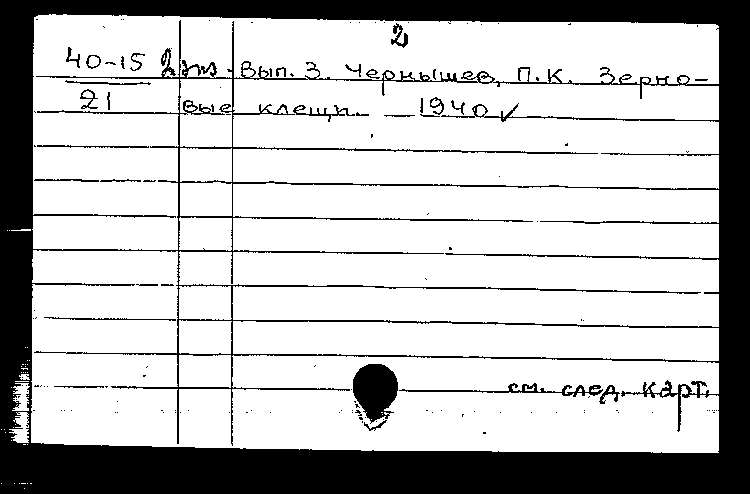 2
40-15 2 экз. Вып. 3. Чернышев, П.К. Зерно-
21 вые клещи. 1940 ✓
см. след. карт.